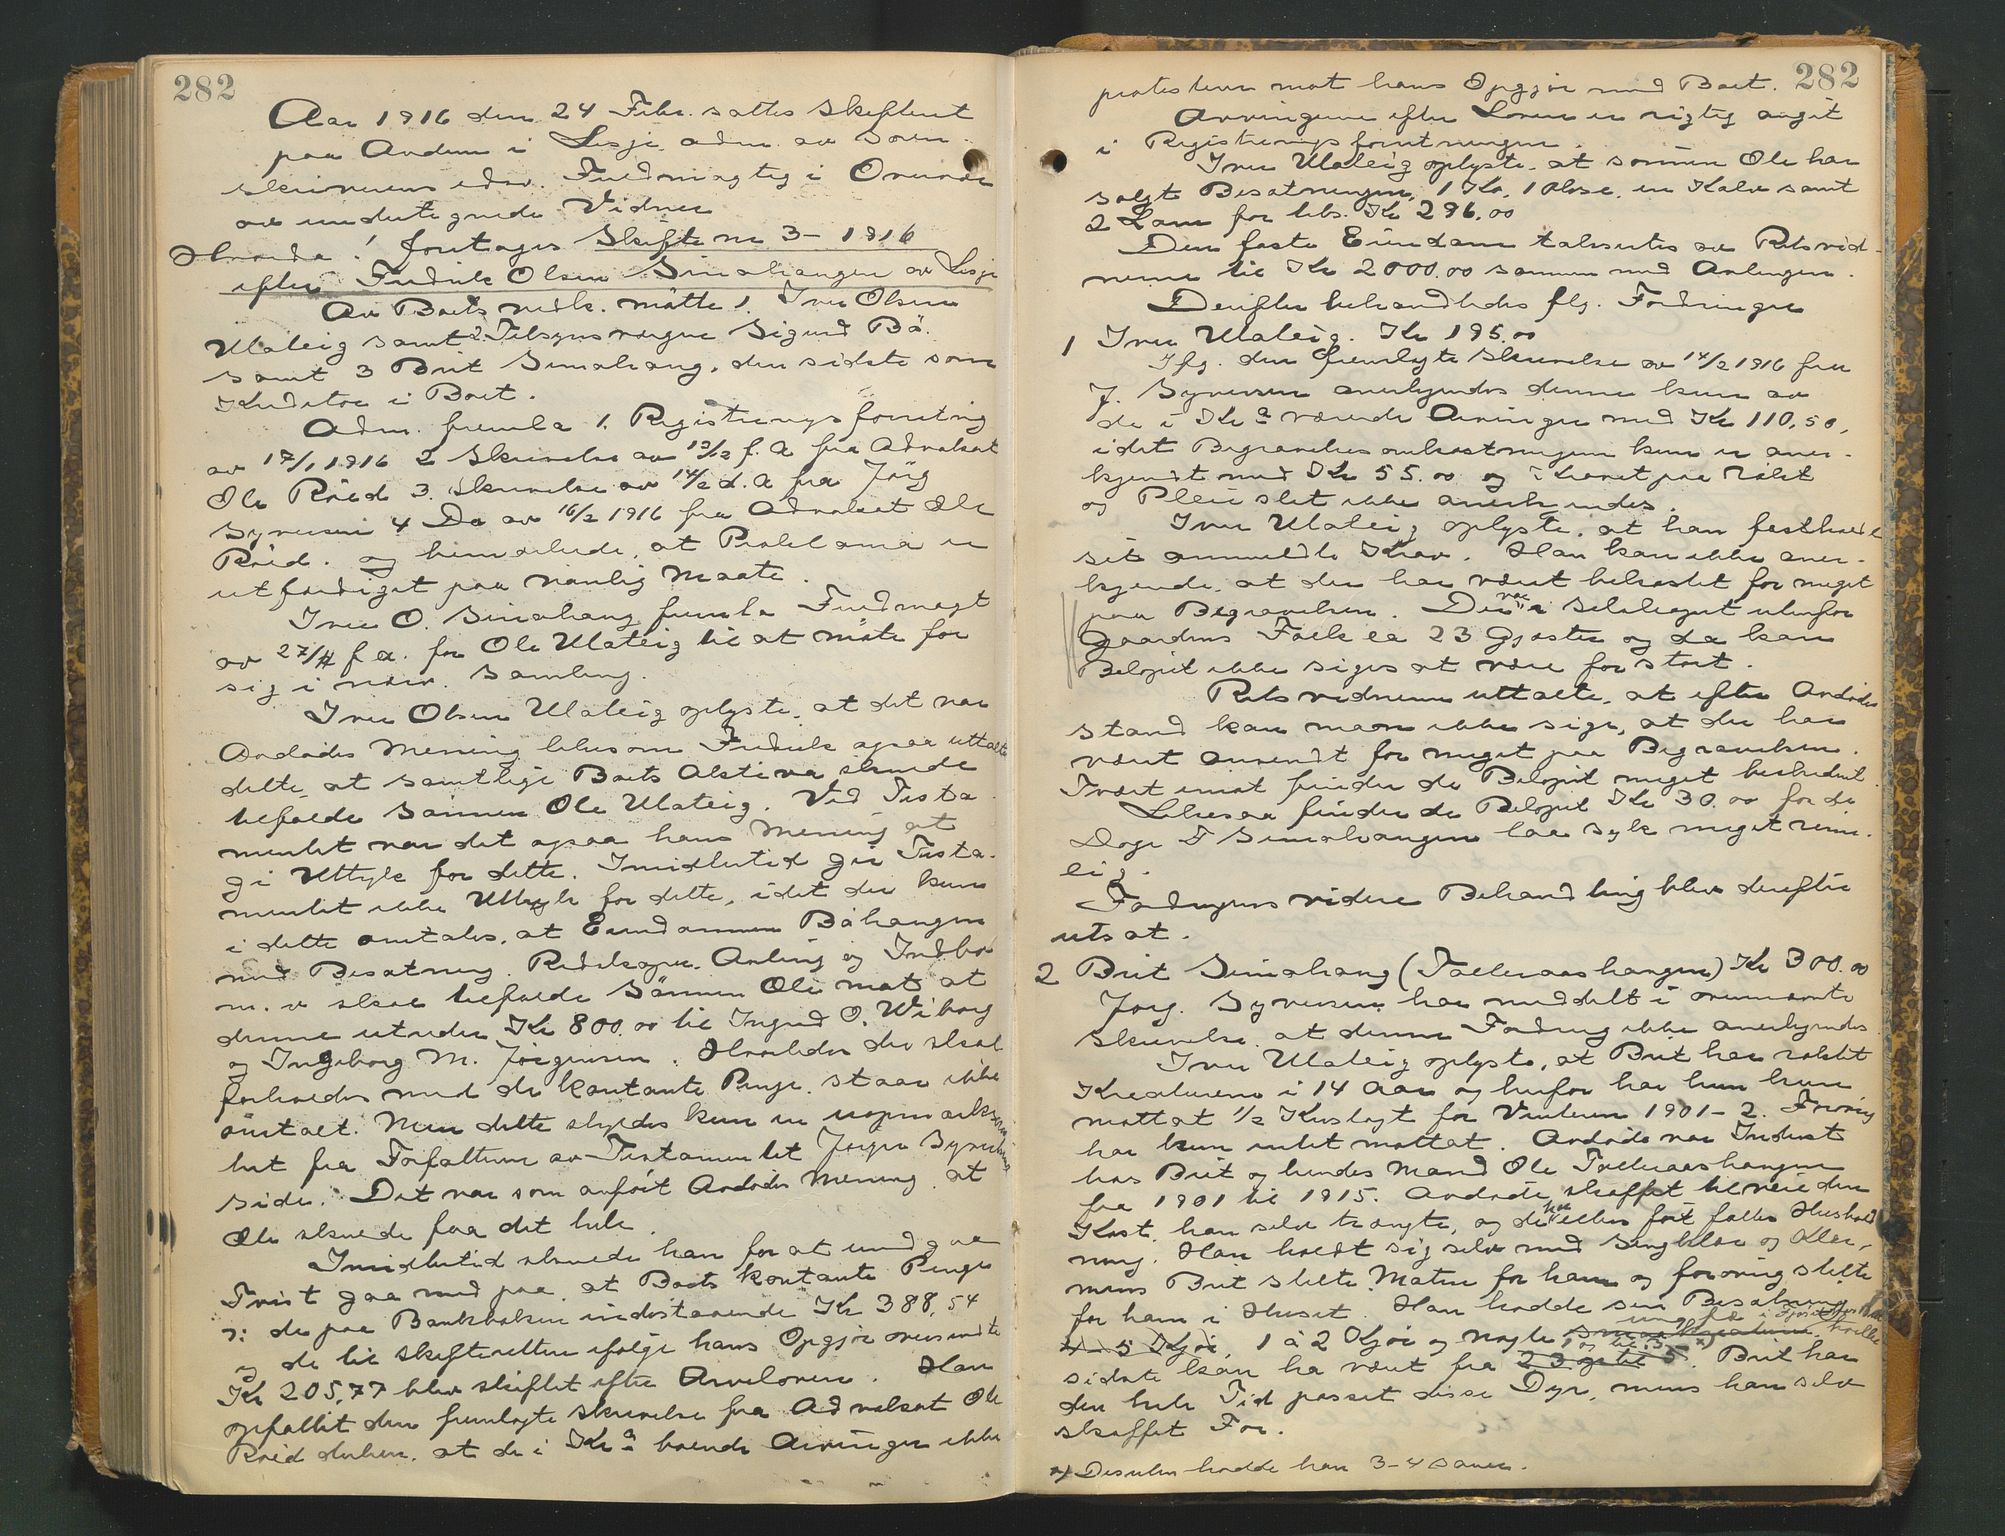 282
Aar 1916 den 24 Febr. sattes Skifteret
paa Andem i Lesje adm. av Soren-
skriverens edsv. Fuldmægtig i Overvær
av undertegnede Vidner
Hvorda! foretages Skifte nr 3 - 1916
efter Fredrik Olsen Simahaugen av Lesje
Av Boets vedk. mötte 1. Iver Olsen
Ulateig samt 2 Tilsynsværge Sigurd Bö.
samt 3 Brit Simahaug, den sidste som
Kreditor i Boet.
Adm. fremla 1. Registreringsforretning
av 17/1 1916 2 Skrivelse av 13/12 f. A fra Advokat
Ole Röed 3. Skrivelse av 14/2 d. A fra Jörg
Syversen 4 Do av 16/2 1916 fra Advokat Ole
Röed. og bemærkede, at Proklama er
utfærdiget paa vanlig Maate.
Iver O. Simahaug fremla Fuldmagt
av 27/11 f a. for Ole Ulateig til at möte for
sig i nærv. Samling.
Iver Olsen Ulateig oplyste, at det var
Avdödes Mening likesom Fredrik ogsaa uttalte
dette, at samtlige Boets Aktiva skulde
tilfalde Sönnen Ole Ulateig. Ved Testa-
mentet var det ogsaa hans Mening at
gi Uttryk for dette. Imidlertid gir Testa-
mentet ikke Uttryk for dette, idet der kun
i dette omtales, at Eiendommen Böhaugen
med Besætning. Redskaper. Avling og Indbo
m. v skal tilfalde Sönnen Ole mot at
denne utreder Kr 800.00 til Ingrid O. Wiborg
og Ingeborg M. Jörgensen. Hvorledes der skal
forholdes med de kontante Penge. staar ikke
omtalt. Men dette skyldes kun en uopmerksom
het fra Forfatteren av Testamentet Jörgen Syversens
side. Det var som anfört Avdödes Mening, at
Ole skulde faa det hele.
Imidlertid skulde han for at undgaa
Tvist gaa med paa, at Boets kontante Penge
ɔ: de paa Bankboken indestaaende Kr 388,54
og de til Skifteretten ifölge hans Opgjör oversendte
Kr 205,77 blev skiftet efter Arveloven. Han
opfattet den fremlagte Skrivelse fra Advokat Ole
Röed derhen. at de i Kra boende Arvinger ikke
282
protesterer mot hans Opgjör med Boet.
Arvingerne efter Loven er rigtig angit
i Registreringsforretningen.
Iver Ulateig oplyste, at sönnen Ole har
solgt Besætningen, 1 Ko, 1 Okse, en Kalv samt
2 Lam for tils. Kr 296.00
Den faste Eiendom taksertes av Retsvid-
nerne til Kr 2000.00 sammen med Avlingen.
Derefter behandledes flg. Fordringer
1 Iver Ulateig. Kr 195.00
Iflg. den fremlagte Skrivelse av 14/2 1916 fra
J. Syversen anerkjendes denne kun av
de i Kra værende Arvinger med Kr 110,50,
idet Begravelsesomkostningen kun er aner-
kjendt med Kr 55.00 og Kravet paa Rökt
og Pleie slet ikke anerkjendes.
Iver Ulateig oplyste, at han fastholdt
sit anmeldte Krav. Han kan ikke aner-
kjende, at der har været bekostet for meget
paa Begravelsen. Der var selskapet utenfor
Gaardens Folk ca 23 Gjæster og da kan
Belöpet ikke siges at være for stort.
Retsvidnerne uttalte, at efter Avdödes
stand kan man ikke sige, at der har
været anvendt for meget paa Begravelsen.
Tvært imot finder de Belöpet meget beskedent.
Likesaa finder de Belöpet Kr 30.00 for de
Dage F Simahaugen laa syk meget rime-
lig.
Fordringens videre Behandling blev derefter
utsat.
2 Brit Simahaug (Tælleraashaugen) Kr 300.00
Jörg. Syversen har meddelt i ovennævnte
Skrivelse at denne Fordring ikke anerkjendes.
Iver Ulateig oplyste, at Brit har röktet
Kreaturene i 14 Aar og herfor har hun kun
mottat 1/2 Kuslagt for Vinteren 1901-2. Forövrig
har hun intet mottat. Avdöde var Inderst
hos Brit og hendes Mand Ole Tælleraashaugen
fra 1901 til 1915. Avdöde skaffet tilveie den
Kost han selv trængte, og der har ellers fört fælles Hushold-
ning. Han holdt sig selv med Sengklær og Klær,
mens Brit stelte Maten for ham og forövrig stelte
for ham i Huset. Han hadde sin Besætning
4-5 Kjör, 1 à 2 Kjör og nogle
sidste kan ha været fra 2 3 og til 5. Brit har
den hele Tid passet disse Dyr, mens han selv
skaffet For.
x) Desuten hadde han 3-4 Sauer.